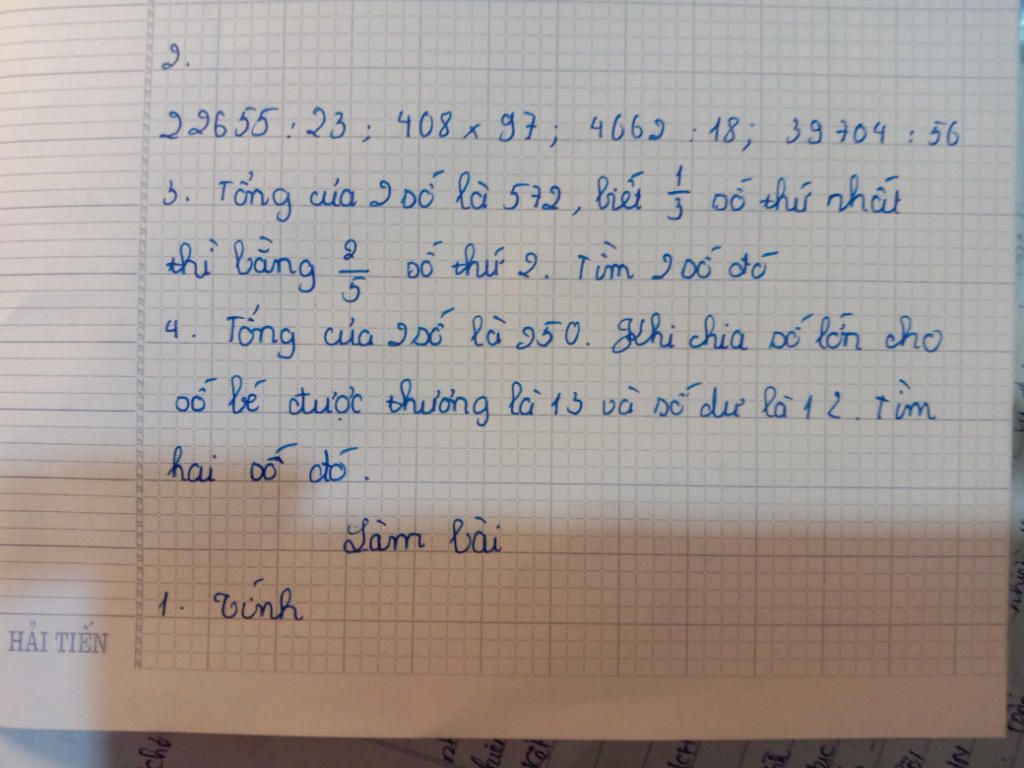 2.
22655 : 23 ; 408 x 97 ; 4662 : 18 ; 39704 : 56
3. Tổng của 2 số là 572, biết 1/3 số thứ nhất
thì bằng 2/5 số thứ 2. Tìm 2 số đó
4. Tổng của 2 số là 250. Khi chia số lớn cho
số bé được thương là 13 và số dư là 12. Tìm
hai số đó.
Làm bài
1. Tính
HẢI TIẾN